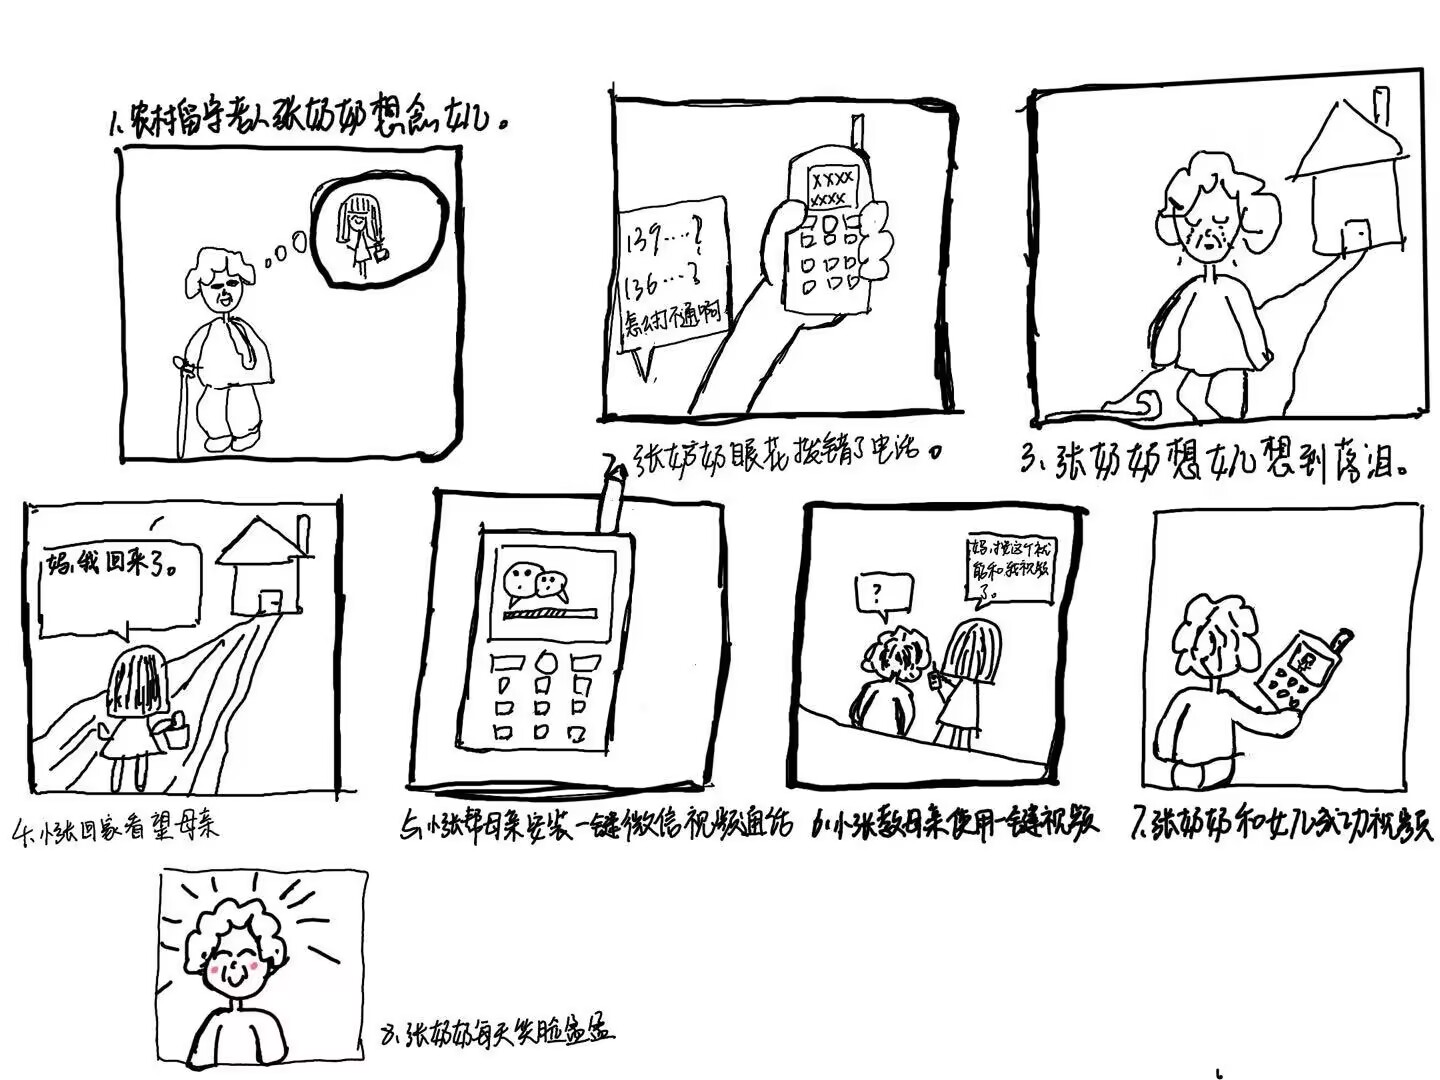 1、农村留守老人张奶奶想念女儿。
139....?
136....?
怎么打不通啊
XXXX
XXXX
2、张奶奶眼花拨错了电话。
3、张奶奶想女儿想到落泪。
妈,我回来了。
4、小张回家看望母亲
5、小张帮母亲安装一键微信视频通话
?
妈,按这个就
能和我视频
了。
6、小张教母亲使用一键视频
7、张奶奶和女儿成功视频
8、张奶奶每天笑脸盈盈